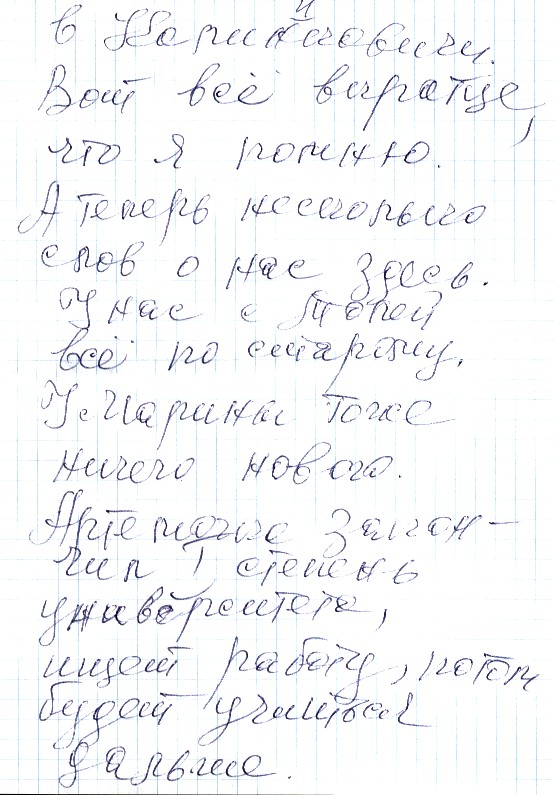 в Каринковичи.
Вот всё вкратце,
что я помню.
А теперь несколько
слов о нас здесь.
У нас с Толей
всё по старому.
У Марины тоже
ничего нового.
Артёмка закон-
чил I степень
университета,
ищет работу, потом
будет учиться
дальше.